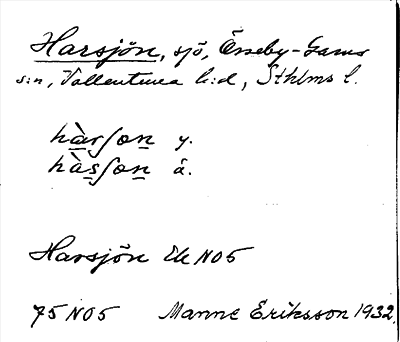 Harsjön, sjö, Össeby-Garns
s:n, Vallentuna h:d, Sthlms l.
hàrʃon y.
hàsʃon ä.
Harsjön Ek N05
75 N05 Manne Eriksson 1932.